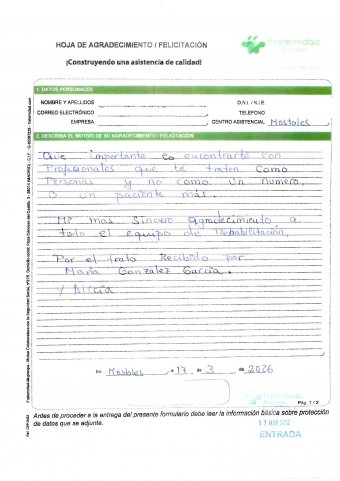 HOJA DE AGRADECIMIENTO / FELICITACIÓN
fraternidad
¡Construyendo una asistencia de calidad!
1. DATOS PERSONALES
NOMBRE Y APELLIDOS
D.N.I. / N.I.E.
CORREO ELECTRÓNICO
TELÉFONO
EMPRESA
CENTRO ASISTENCIAL Mostoles
2. DESCRIBA EL MOTIVO DE SU AGRADECIMIENTO / FELICITACIÓN
Que importante es encontrarte con
Profesionales que te traten como
Personas y no como un numero,
o un paciente más.
Mi mas sincero agradecimiento a
todo el equipo de Rehabilitación,
Por el trato Recibido por
Maria Gonzalez Garcia.
y Alicia
En Mostoles a 17 de 3 de 2026
Pág. 1 / 2
Antes de proceder a la entrega del presente formulario debe leer la información básica sobre protección
de datos que se adjunta.
ENTRADA